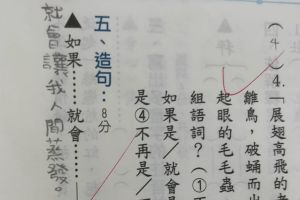 (4)4.「展翅高飛的老
雛鳥，破蛹而出
起眼的毛毛蟲
組語詞？（①不
如果是／就會是
是④不再是／
五、造句：8分
▲如果……就會
就會讓我人間蒸發。